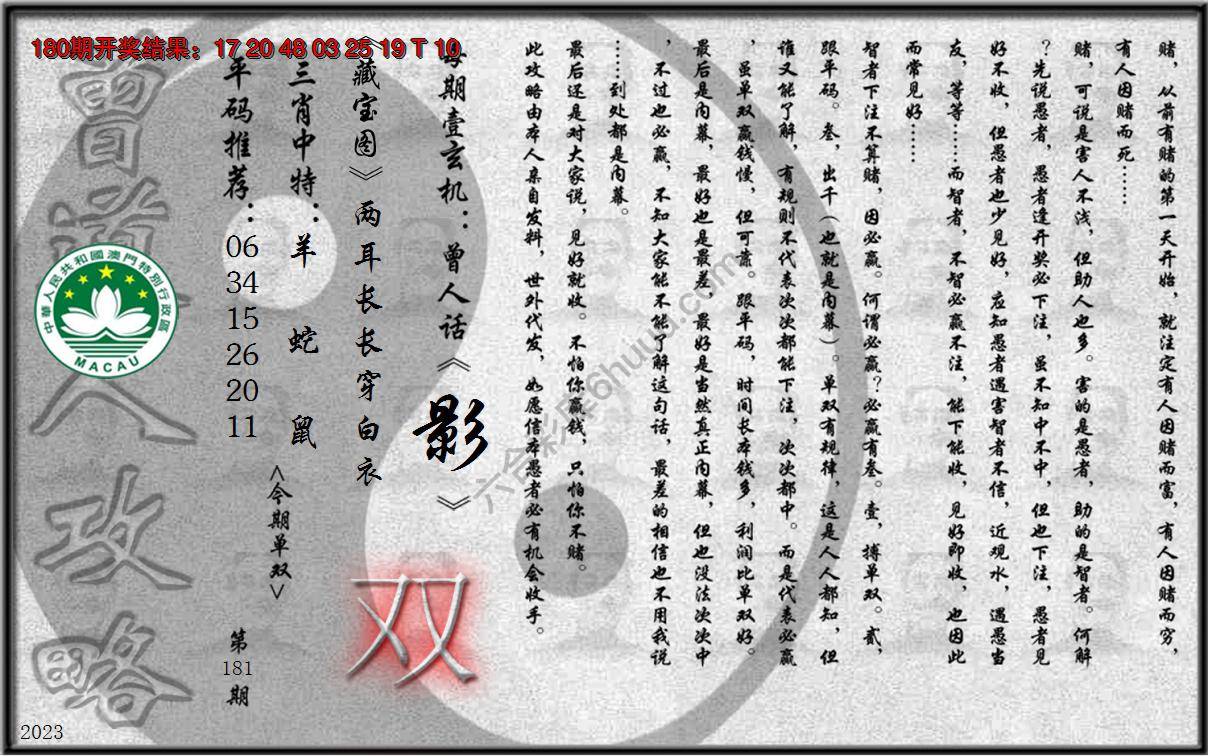 180期开奖结果：17 20 48 03 25 19 T 10
赌，从前有赌的第一天开始，就注定有人因赌而富，有人因赌而穷，
有人因赌而死……
赌，可说是害人不浅，但助人也多。害的是愚者，助的是智者。何解
？先说愚者，愚者逢开奖必下注，虽不知中不中，但也下注，愚者见
好不收，但愚者也少见好，应知愚者遇害智者不信，近观水，遇愚当
友，等等……而智者，不智必赢不注，能下能收，见好即收，也因此
而常见好……
智者下注不算赌，因必赢。何谓必赢？必赢有叁。壹，搏单双。贰，
跟平码。叁，出千（也就是内幕）。单双有规律，这是人人都知，但
谁又能了解，有规则不代表次次都能下注，次次都中。而是代表必赢
，虽单双赢钱慢，但可靠。跟平码，时间长本钱多，利润比单双好。
最后是内幕，最好也是最差，最好是当然真正内幕，但也没法次次中
，不过也必赢，不知大家能不能了解这句话，最差的相信也不用我说
……到处都是内幕。
最后还是对大家说，见好就收。不怕你赢钱，只怕你不赌。
此攻略由本人亲自发料，世外代发，如愿信本愚者必有机会收手。
每期壹玄机：曾人话《影》
《藏宝图》两耳长长穿白衣
三肖中特：羊 蛇 鼠
平码推荐：06 34 15 26 20 11
<今期单双>
双
第181期
曾道人攻略
中華人民共和國澳門特別行政區
MACAU
2023